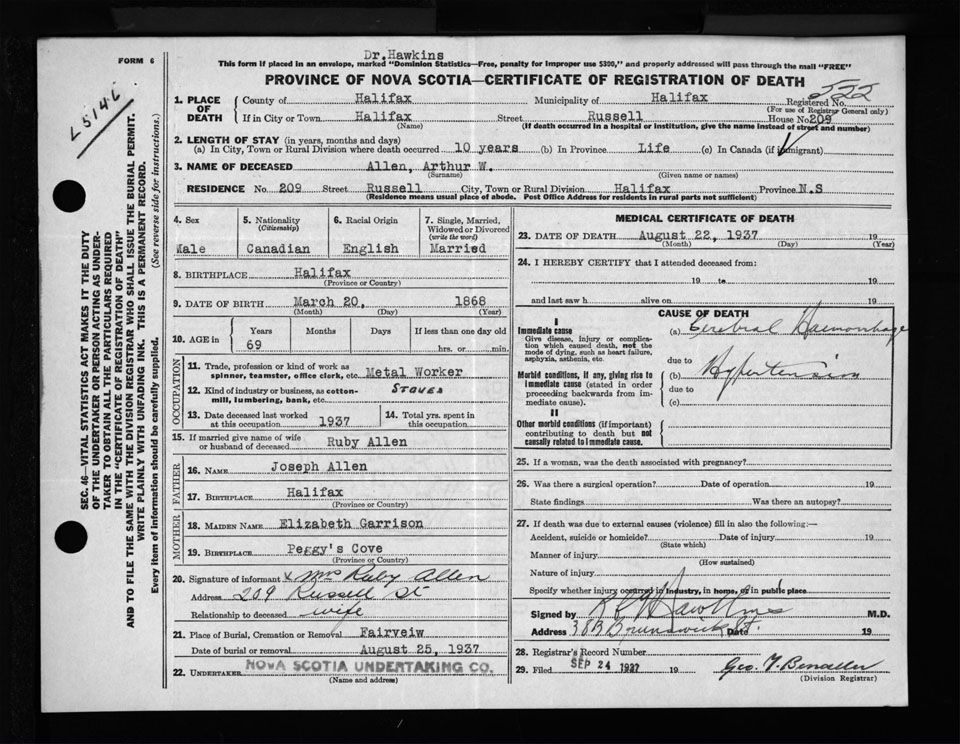 FORM 6
Dr. Hawkins
This form if placed in an envelope, marked "Dominion Statistics—Free, penalty for improper use $300," and properly addressed will pass through the mail "FREE"
PROVINCE OF NOVA SCOTIA—CERTIFICATE OF REGISTRATION OF DEATH
L5146
SEC. 46—VITAL STATISTICS ACT MAKES IT THE DUTY
OF THE UNDERTAKER OR PERSON ACTING AS UNDER-
TAKER TO OBTAIN ALL THE PARTICULARS REQUIRED
IN THE "CERTIFICATE OF REGISTRATION OF DEATH"
AND TO FILE THE SAME WITH THE DIVISION REGISTRAR WHO SHALL ISSUE THE BURIAL PERMIT.
WRITE PLAINLY WITH UNFADING INK. THIS IS A PERMANENT RECORD.
Every item of information should be carefully supplied. (See reverse side for instructions.)
1. PLACE OF DEATH
County of Halifax Municipality of Halifax Registered No. 522
(For use of Registrar General only)
If in City or Town Halifax Street Russell House No. 209
(Name) (If death occurred in a hospital or institution, give the name instead of street and number)
2. LENGTH OF STAY (in years, months and days)
(a) In City, Town or Rural Division where death occurred 10 years (b) In Province Life (c) In Canada (if immigrant)
3. NAME OF DECEASED Allen, Arthur W.
(Surname) (Given name or names)
RESIDENCE No. 209 Street Russell City, Town or Rural Division Halifax Province N.S
(Residence means usual place of abode. Post Office Address for residents in rural parts not sufficient)
4. Sex 5. Nationality (Citizenship) 6. Racial Origin 7. Single, Married, Widowed or Divorced (write the word)
Male Canadian English Married
8. BIRTHPLACE Halifax
(Province or Country)
9. DATE OF BIRTH March 20, 1868
(Month) (Day) (Year)
10. AGE in Years Months Days If less than one day old
69 hrs. or min.
OCCUPATION
11. Trade, profession or kind of work as spinner, teamster, office clerk, etc. Metal Worker
12. Kind of industry or business, as cotton-mill, lumbering, bank, etc. Stoves
13. Date deceased last worked at this occupation 1937 14. Total yrs. spent in this occupation
15. If married give name of wife or husband of deceased Ruby Allen
FATHER
16. NAME Joseph Allen
17. BIRTHPLACE Halifax
(Province or Country)
MOTHER
18. MAIDEN NAME Elizabeth Garrison
19. BIRTHPLACE Peggy's Cove
(Province or Country)
20. Signature of informant x Mrs Ruby Allen
Address 209 Russell St
Relationship to deceased wife
21. Place of Burial, Cremation or Removal Fairveiw
Date of burial or removal August 25, 1937
22. UNDERTAKER NOVA SCOTIA UNDERTAKING CO.
(Name and address)
MEDICAL CERTIFICATE OF DEATH
23. DATE OF DEATH August 22, 1937 19
(Month) (Day) (Year)
24. I HEREBY CERTIFY that I attended deceased from:
19 to 19
and last saw h alive on 19
CAUSE OF DEATH
I
Immediate cause (a) Cerebral Haemorrhage
Give disease, injury or complication which caused death, not the mode of dying, such as heart failure, asphyxia, asthenia, etc.
due to
Morbid conditions, if any, giving rise to immediate cause (stated in order proceeding backwards from immediate cause). (b) Hypertension
due to
(c)
II
Other morbid conditions (if important) contributing to death but not causally related to immediate cause.
25. If a woman, was the death associated with pregnancy?
26. Was there a surgical operation? Date of operation 19
State findings Was there an autopsy?
27. If death was due to external causes (violence) fill in also the following:—
Accident, suicide or homicide? Date of injury 19
(State which)
Manner of injury
(How sustained)
Nature of injury
Specify whether injury occurred in industry, in home, or in public place
Signed by Hawkins M.D.
Address 383 Brunswick St. Date 19
28. Registrar's Record Number
29. Filed SEP 24 1937 19
(Division Registrar)